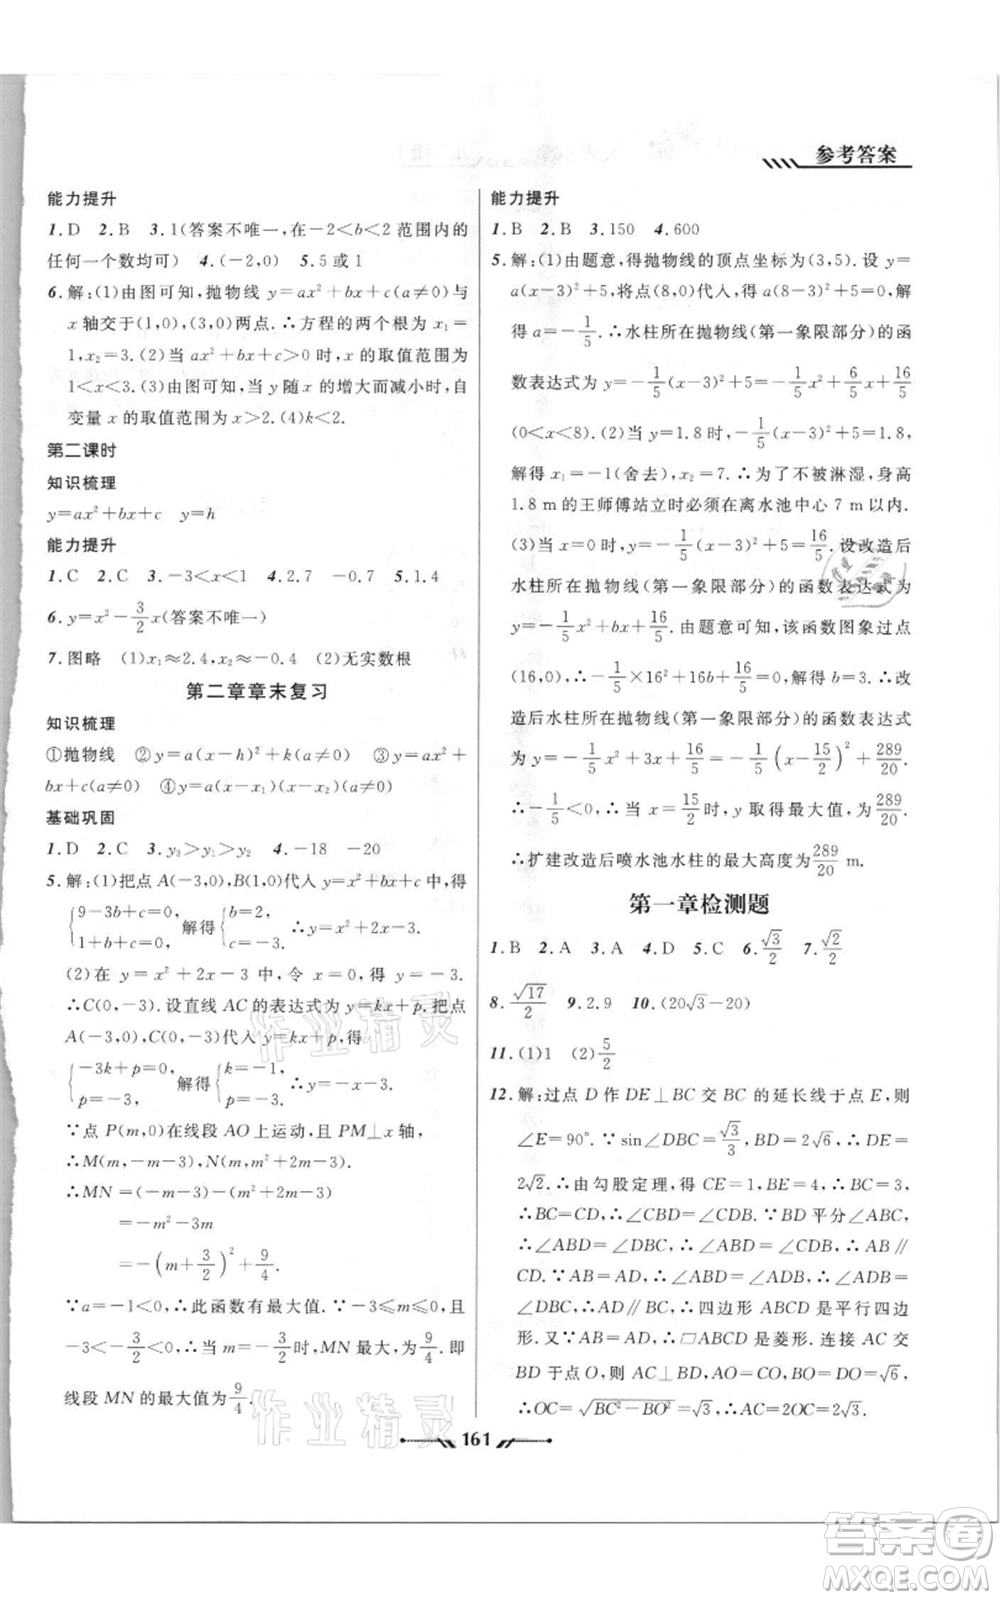 参考答案
能力提升
1.D 2.B 3.1(答案不唯一,在-2<b<2范围内的
任何一个数均可) 4.(-2,0) 5.5或1
6.解:(1)由图可知,抛物线 y=ax²+bx+c(a≠0)与
x轴交于(1,0),(3,0)两点.∴方程的两个根为x₁=
1,x₂=3.(2)当 ax²+bx+c>0时,x的取值范围为
1<x<3.(3)由图可知,当y随x的增大而减小时,自
变量x的取值范围为x>2.(4)k<2.
第二课时
知识梳理
y=ax²+bx+c y=h
能力提升
1.C 2.C 3.-3<x<1 4.2.7 -0.7 5.1.4
6.y=x²-3/2x(答案不唯一)
7.图略 (1)x₁≈2.4,x₂≈-0.4 (2)无实数根
第二章章末复习
知识梳理
①抛物线 ②y=a(x-h)²+k(a≠0) ③y=ax²+
bx+c(a≠0) ④y=a(x-x₁)(x-x₂)(a≠0)
基础巩固
1.D 2.C 3.y₃>y₁>y₂ 4.-18 -20
5.解:(1)把点A(-3,0),B(1,0)代入y=x²+bx+c,得
{9-3b+c=0, 1+b+c=0, 解得{b=2, c=-3. ∴y=x²+2x-3.
(2)在 y=x²+2x-3中,令 x=0,得 y=-3.
∴C(0,-3).设直线AC的表达式为y=kx+p.把点
A(-3,0),C(0,-3)代入y=kx+p,得
{-3k+p=0, p=-3, 解得{k=-1, p=-3. ∴y=-x-3.
∵点P(m,0)在线段AO上运动,且PM⊥x轴,
∴M(m,-m-3),N(m,m²+2m-3).
∴MN=(-m-3)-(m²+2m-3)
=-m²-3m
=-(m+3/2)²+9/4.
∵a=-1<0,∴此函数有最大值.∵-3≤m≤0,且
-3<-3/2<0,∴当m=-3/2时,MN最大,为9/4.即
线段MN的最大值为9/4.
能力提升
1.B 2.B 3.150 4.600
5.解:(1)由题意,得抛物线的顶点坐标为(3,5).设y=
a(x-3)²+5,将点(8,0)代入,得a(8-3)²+5=0,解
得a=-1/5.∴水柱所在抛物线(第一象限部分)的函
数表达式为y=-1/5(x-3)²+5=-1/5x²+6/5x+16/5
(0<x<8).(2)当y=1.8时,-1/5(x-3)²+5=1.8,
解得x₁=-1(舍去),x₂=7.∴为了不被淋湿,身高
1.8 m的王师傅站立时必须在离水池中心7 m以内.
(3)当x=0时,y=-1/5(x-3)²+5=16/5.设改造后
水柱所在抛物线(第一象限部分)的函数表达式为
y=-1/5x²+bx+16/5.由题意可知,该函数图象过点
(16,0),∴-1/5×16²+16b+16/5=0,解得b=3.∴改
造后水柱所在抛物线(第一象限部分)的函数表达式
为y=-1/5x²+3x+16/5=-1/5(x-15/2)²+289/20.
∵-1/5<0,∴当x=15/2时,y取得最大值,为289/20.
∴扩建改造后喷水池水柱的最大高度为289/20 m.
第一章检测题
1.B 2.A 3.A 4.D 5.C 6.√3/2 7.√2/2
8.√17/2 9.2.9 10.(20√3-20)
11.(1)1 (2)5/2
12.解:过点D作DE⊥BC交BC的延长线于点E,则
∠E=90°.∵sin∠DBC=√3/3,BD=2√6,∴DE=
2√2.∴由勾股定理,得CE=1,BE=4,∴BC=3,
∴BC=CD,∴∠CBD=∠CDB.∵BD平分∠ABC,
∴∠ABD=∠DBC,∴∠ABD=∠CDB,∴AB∥
CD.同理AD∥BC,∴四边形ABCD是平行四边
形.又∵AB=AD,∴▱ABCD是菱形.连接AC交
BD于点O,则AC⊥BD,AO=CO,BO=DO=√6,
∴OC=√(BC²-BO²)=√3,∴AC=2OC=2√3.
161
作业精灵
作业精灵
答案卷
MXQE.COM